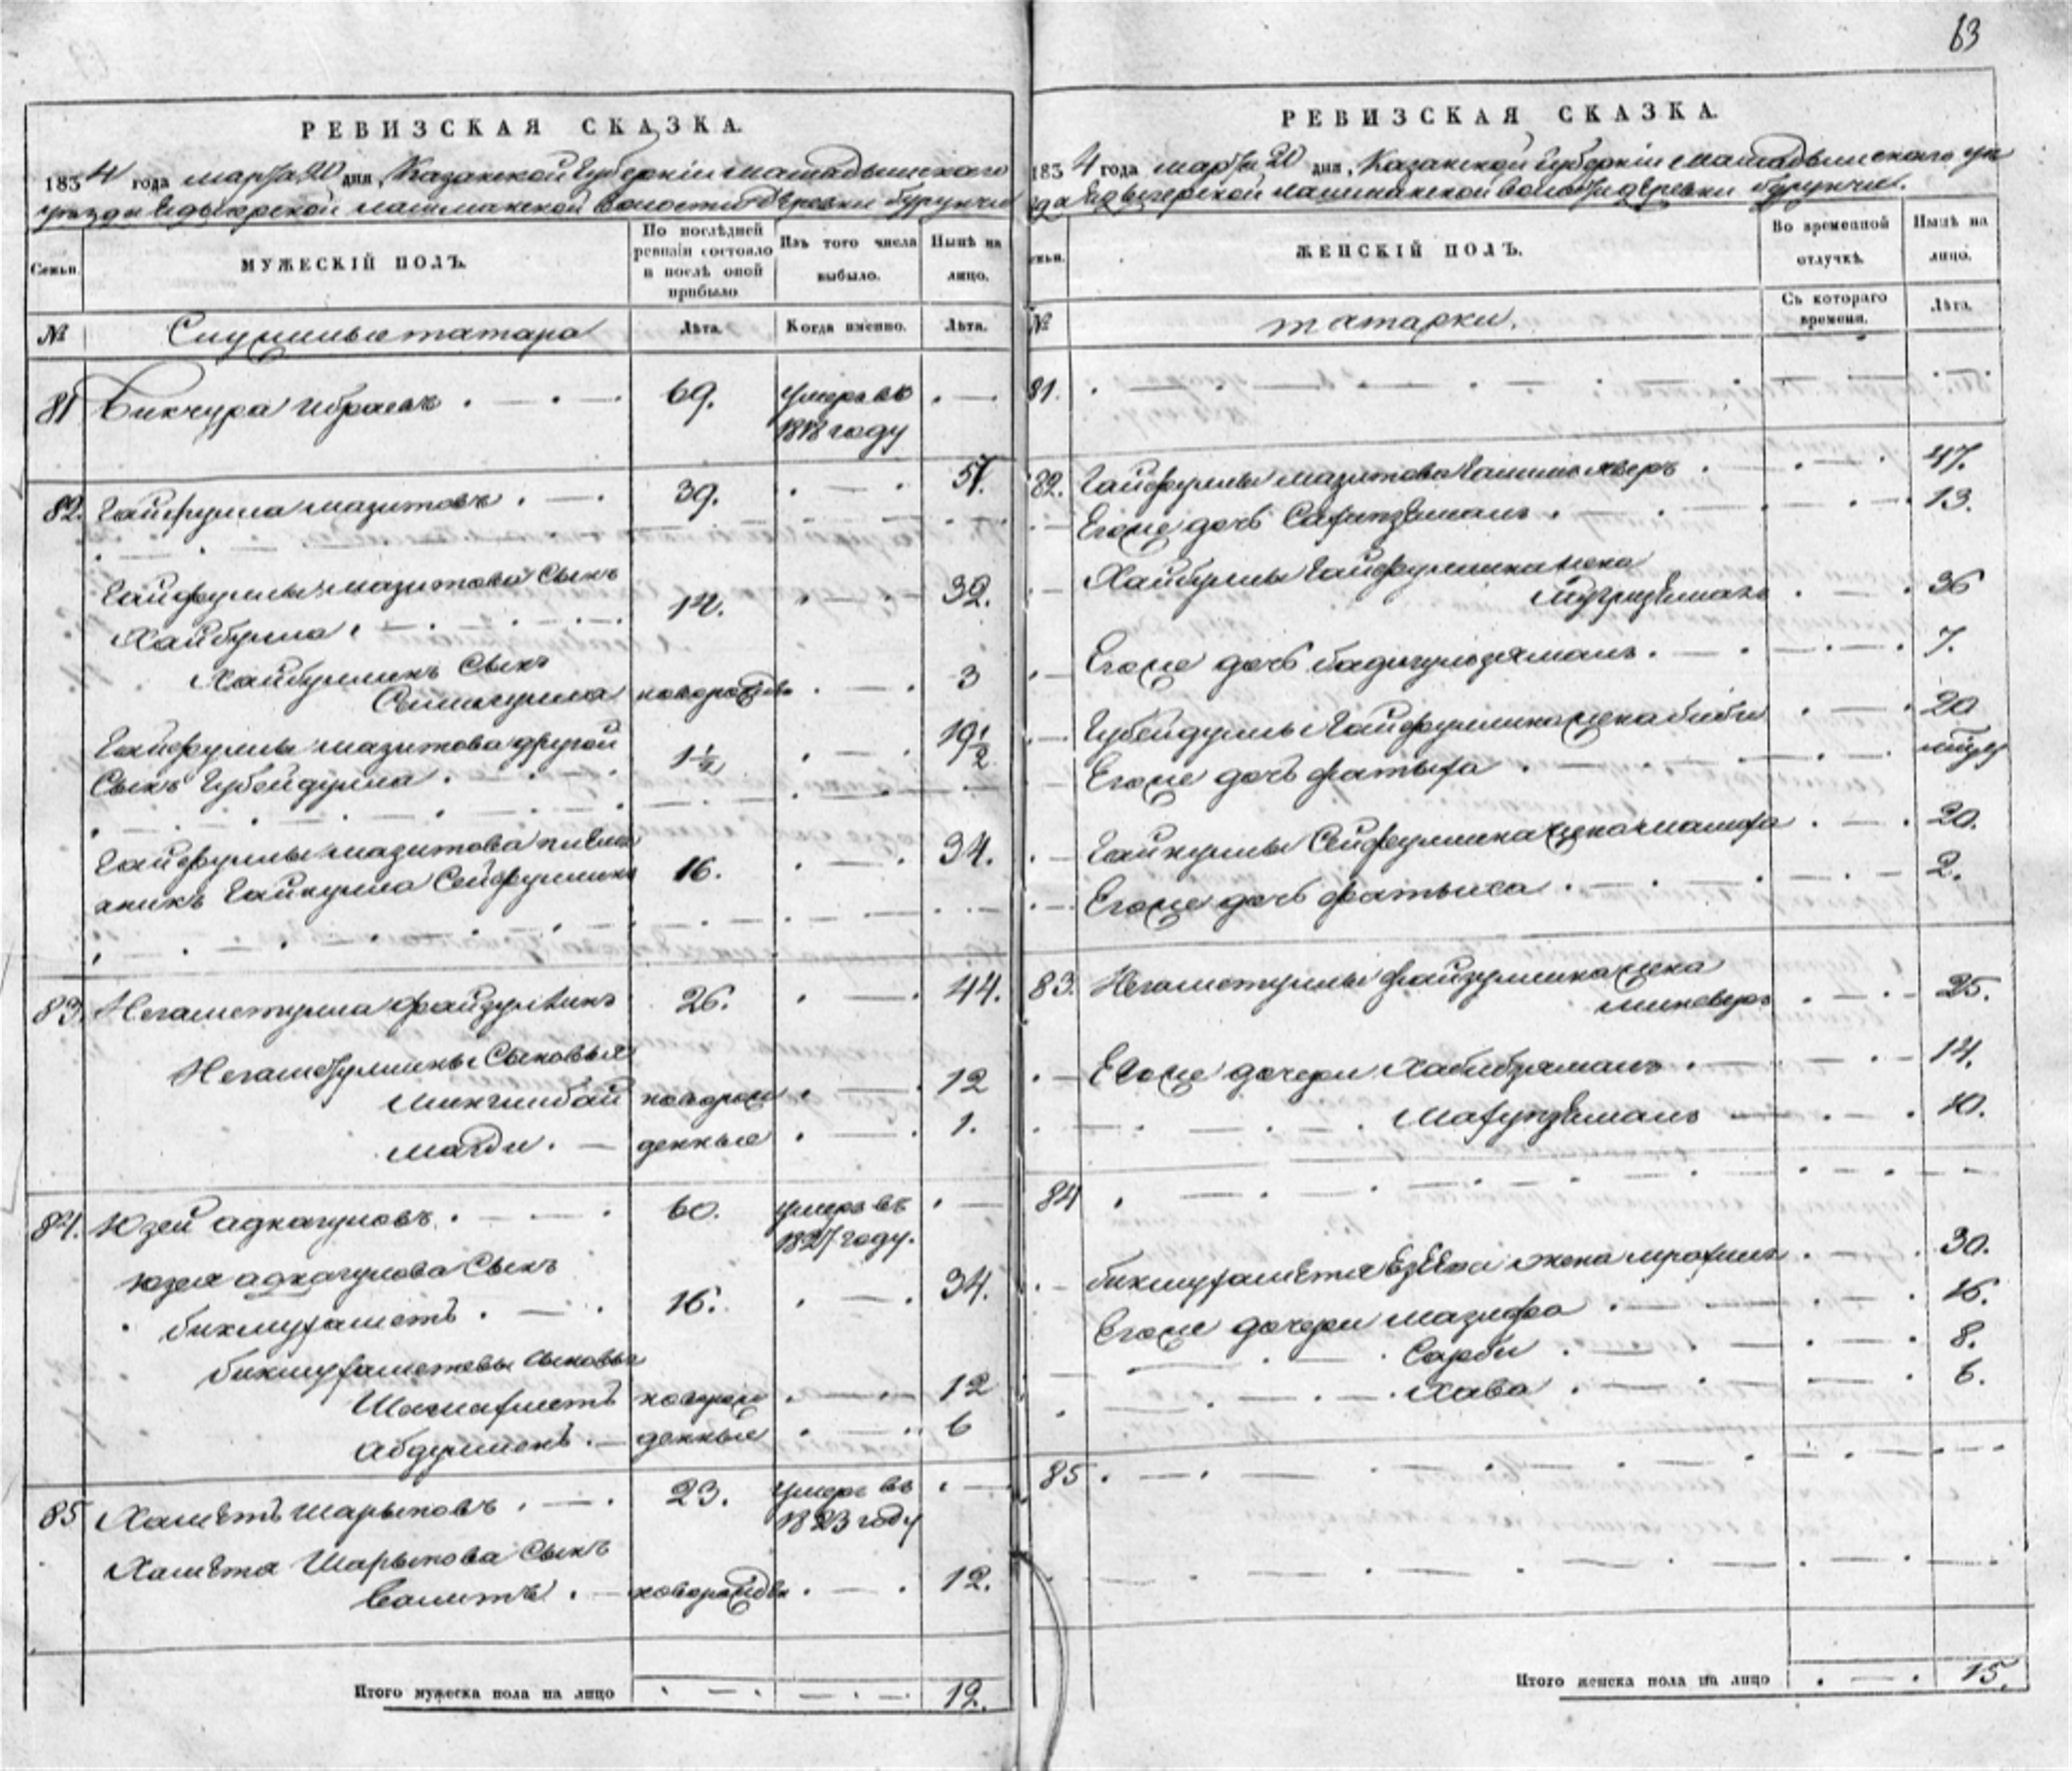 63
РЕВИЗСКАЯ СКАЗКА.
1834 года марта 20 дня, Казанской губерніи мамадышскаго
уезда Едыгерской лашманской волости деревни бурунчи
Семьи.
МУЖЕСКІЙ ПОЛЪ.
По послѣдней ревизіи состояло и послѣ оной прибыло
Изъ того числа выбыло.
Нынѣ на лицо.
№
Служилые татара
Лѣта.
Когда именно.
Лѣта.
81 Бикчура Ибраевъ 69. умеръ въ
1818 году
82. Гайфулла мазитовъ 39. 57.
Гайфуллы мазитова сынъ
Хайбулла 14. 32.
Хайбуллинъ сынъ
новорожден 3
Гайфуллы мазитова другой
сынъ Губейдулла 1½ 19½
Гайфуллы мазитова племя
аникъ Гайнулла Сейфуллинъ 16. 34.
83. Негаметулла файзуллинъ 26. 44.
Негаметуллины сыновья
Минглибай новорож 12
Магди денные 1.
84. Юзей адкагуловъ 60. умеръ въ
1827 году.
Юзея адкагулова сынъ
бикмухаметъ 16. 34.
бикмухаметевы сыновья
Шагиахметъ новорож 12
абдулменъ денные 6
85 Хаметъ шарыповъ 23. умеръ въ
1823 году
Хаметя Шарыпова сынъ
Валитъ новорожден 12.
Итого мужеска пола на лицо 12.
РЕВИЗСКАЯ СКАЗКА.
1834 года марта 20 дня, Казанской губерніи мамадышскаго уѣ
зда Едыгерской лашманской волости деревни бурунчи.
семьи.
ЖЕНСКІЙ ПОЛЪ.
Во временной отлучкѣ.
Нынѣ на лицо.
№
татарки.
Съ котораго времени.
Лѣта.
81.
82. Гайфуллы мазитова 47.
Егоже дочь 13.
Хайбуллы Гайфуллина жена
36
Егоже дочь бадигулзяманъ 7.
Губейдуллы Гайфуллина жена биби 20
Егоже дочь фатыха
Гайнуллы Сейфуллина жена малифа 20.
Егоже дочь фатыха 2.
83. Негаметуллы файзуллина жена
миневеръ 25.
Егоже дочери Хабибзяманъ 14.
Махупзямалъ 10.
84
бикмухаметя Езеева жена 30.
Егоже дочери мазифа 16.
Сарби 8.
Хава 6.
85
Итого женска пола на лицо 15.